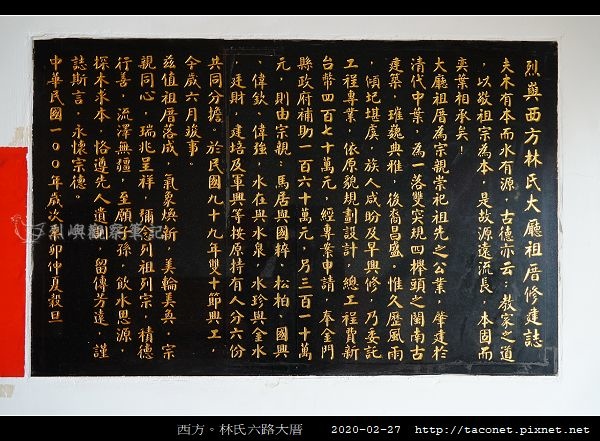 烈嶼西方林氏大廳祖厝修建誌
夫木有本而水有源，古德亦云：教家之道
，以敬祖宗為本，是故源遠流長，本固而
英葉相承矣！
大廳祖厝為宗親崇祀祖先之公業，肇建於
清代中葉，為一落雙突規四櫸頭之閩南古
建築，璀巍典雅，後裔昌盛，惟久歷風雨
，傾圮堪虞，族人咸盼及早興修，乃委託
工程專業，依原貌規劃設計，總工程費新
台幣四百七十萬元，經專案申請，奉金門
縣政府補助一百六十萬元，乃三百一十萬
元，則由宗親：馬居與國粹、松柏、國興
、偉欽、偉強，水在與水泉、水珍與金水
、廷財、建培及軍興等按原持有人分六份
共同分擔。於民國九十九年雙十節興工，
今歲六月竣事。
茲值祖厝落成，氣象煥新，美輪美奐，宗
親同心，瑞兆呈祥，彌念列祖列宗，積德
行善，流澤無疆，至願子孫，飲水思源，
探木求本，恪遵先人遺訓，留傳芳遠，謹
誌斯言，永懷宗德。
中華民國一００年歲次辛卯仲夏穀旦
烈嶼觀察筆記
西方。林氏六路大厝 2020-02-27 http://taconet.pixnet.net